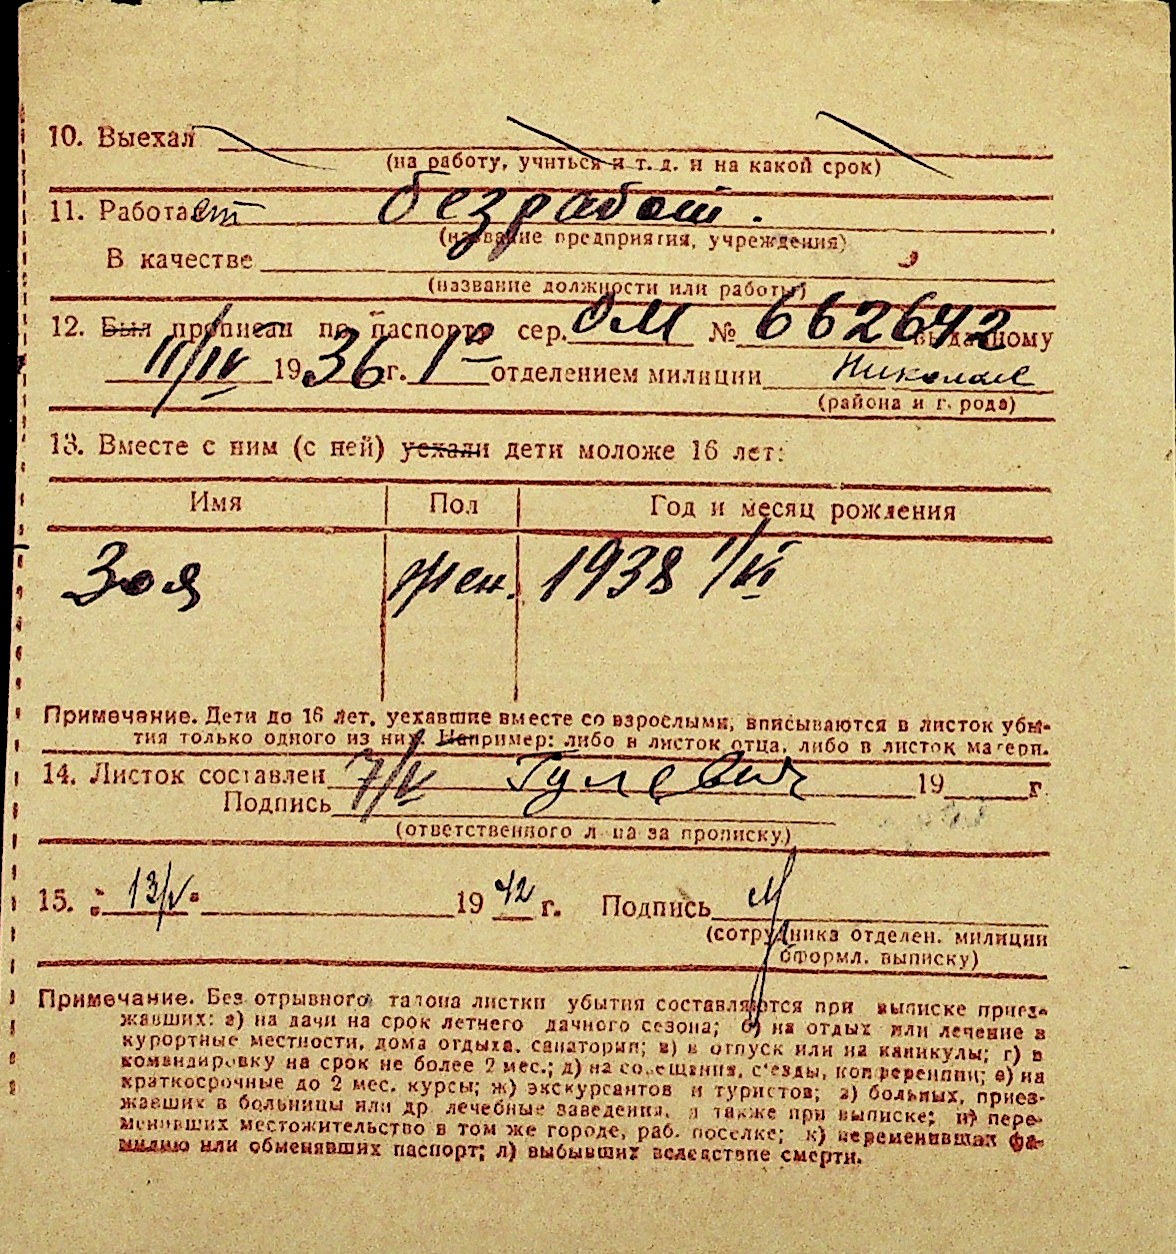 10. Выехал
(на работу, учиться и т. д. и на какой срок)
11. Работает безработ.
(название предприятия, учреждения)
В качестве
(название должности или работы)
12. Был прописан по паспорту сер. ОМ № 662642 выданному
11/IV 1936 г. 1е отделением милиции Николаев
(района и города)
13. Вместе с ним (с ней) уехали дети моложе 16 лет:
Имя Пол Год и месяц рождения
Зоя жен. 1938 1/VI
Примечание. Дети до 16 лет, уехавшие вместе со взрослыми, вписываются в листок убы-
тия только одного из них. Например: либо в листок отца, либо в листок матери.
14. Листок составлен 7/V Гулевич 19 г.
Подпись
(ответственного лица за прописку)
15. „ 13/V “ 1942 г. Подпись
(сотрудника отделен. милиции
оформл. выписку)
Примечание. Без отрывного талона листки убытия составляются при выписке приез-
жавших: а) на дачи на срок летнего дачного сезона; б) на отдых или лечение в
курортные местности, дома отдыха, санатории; в) в отпуск или на каникулы; г) в
командировку на срок не более 2 мес.; д) на совещания, с'езды, конференции; е) на
краткосрочные до 2 мес. курсы; ж) экскурсантов и туристов; з) больных, приез-
жавших в больницы или др лечебные заведения, а также при выписке; и) пере-
менивших местожительство в том же городе, раб. поселке; к) переменивших фа-
милию или обменявших паспорт; л) выбывших вследствие смерти.